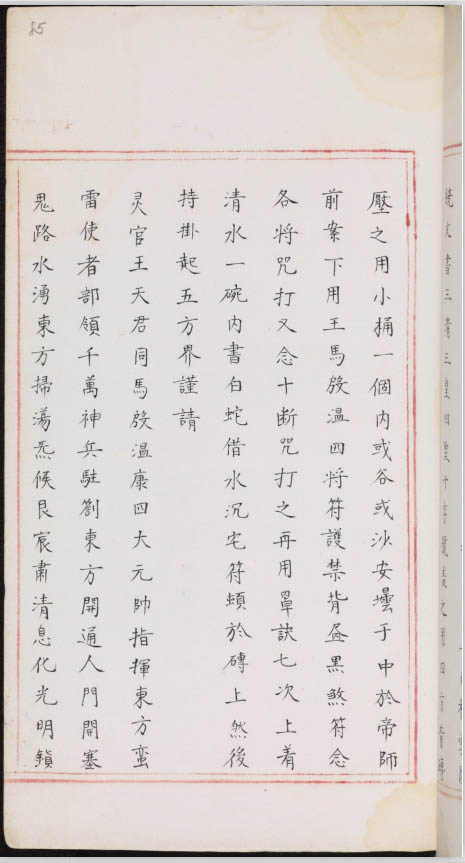 壓之用小桶一個内或谷或沙安壜于中於帝師
前案下用王馬殷溫四将符護禁背昼黒煞符念
各将咒打又念十断咒打之再用罩訣七次上着
清水一碗内書白蛇借水沉宅符頓於磚上然後
持掛起五方界謹請
灵官王天君同馬殷溫康四大元帥指揮東方蛮
雷使者部領千萬神兵駐劄東方開通人門開塞
鬼路水湧東方掃湯炁候艮宸肅清息化光明鎮
85